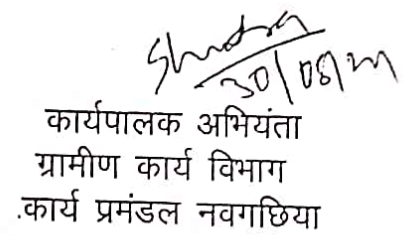 30/08/21
कार्यपालक अभियंता
ग्रामीण कार्य विभाग
.कार्य प्रमंडल नवगछिया